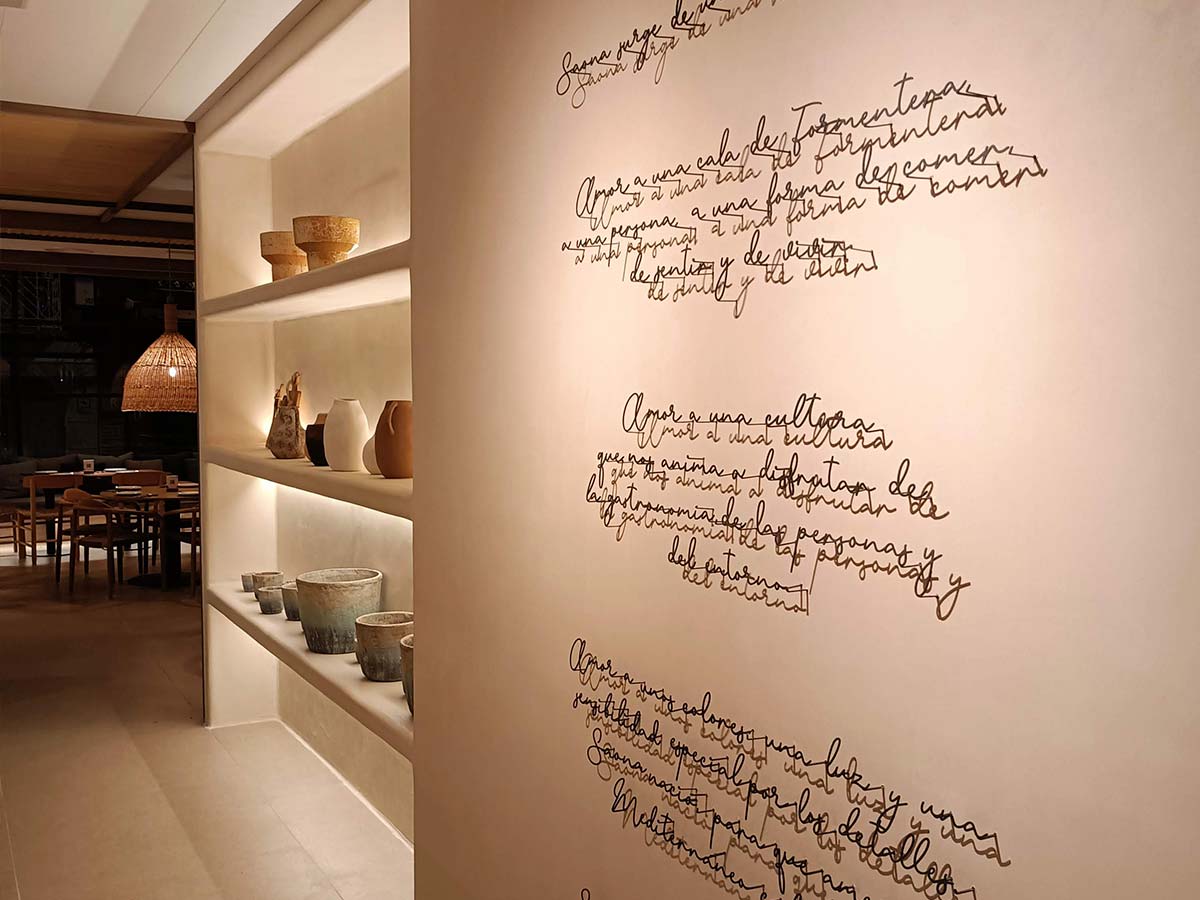 Saona surge de un
Amor a una cala de Formentera,
a una persona, a una forma de comer,
de sentir y de vivir.
Amor a una cultura
que nos anima a disfrutar de
la gastronomía, de las personas y
del entorno.
Amor a unos colores, una luz y una
sensibilidad especial por los detalles.
Saona nació para que
Mediterráneo